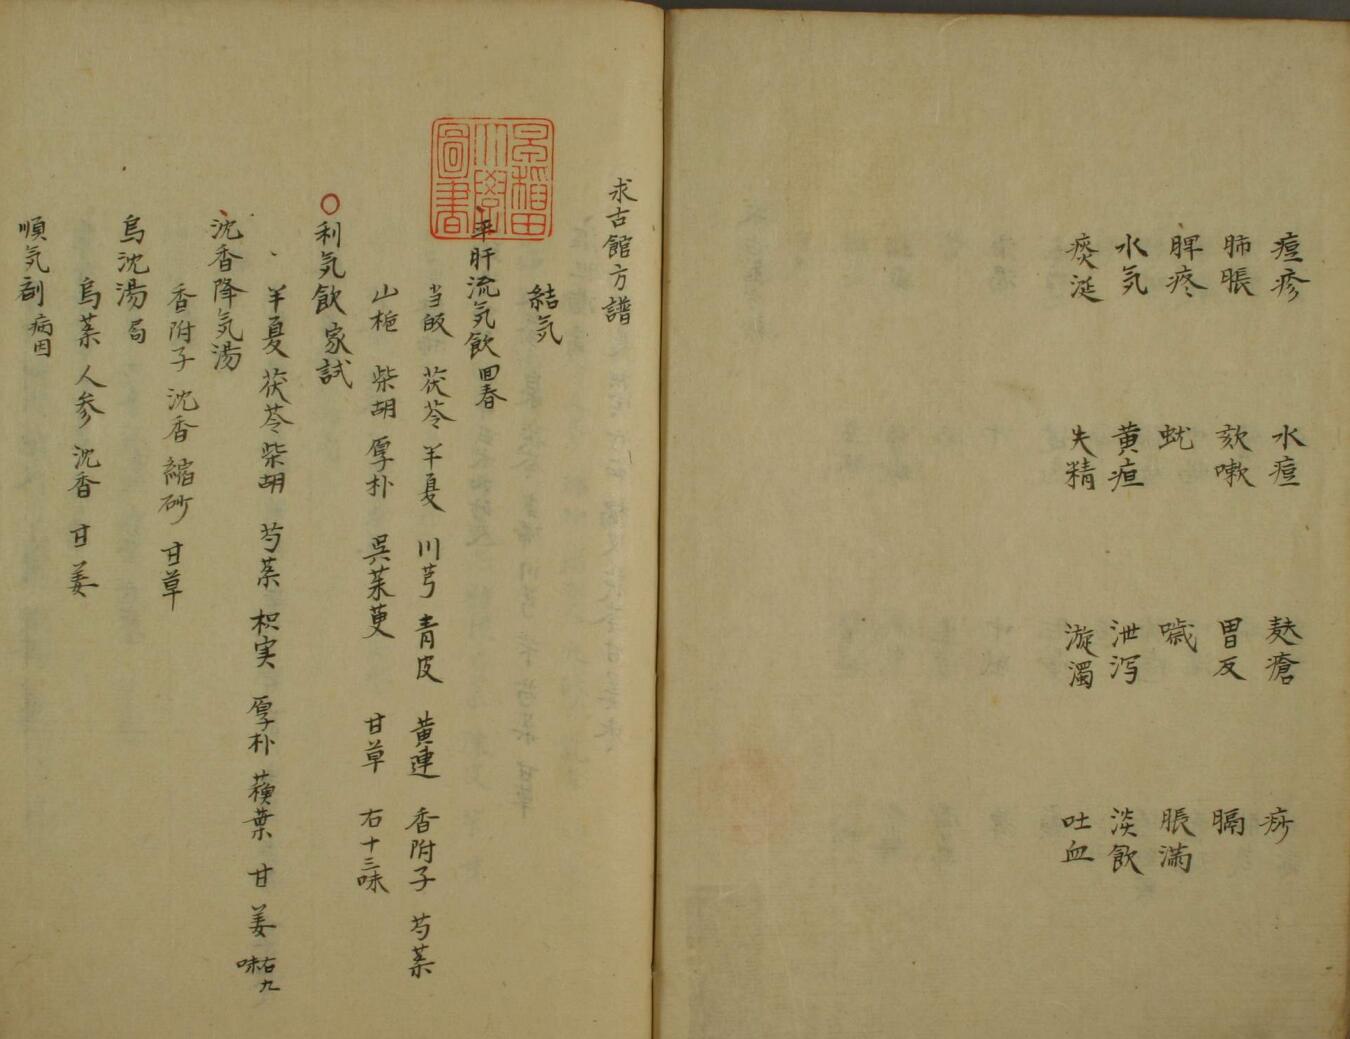 痘疹 水痘 麸瘡 痧
肺脹 欬嗽 胃反 膈
脾疼 蚘 噦 脹満
水気 黄疸 泄泻 淡飲
痰涎 失精 漩濁 吐血
求古館方譜
結気
平肝流気飲 回春
当皈 茯苓 半夏 川芎 青皮 黄連 香附子 芍薬
山栀 柴胡 厚朴 呉茱萸 甘草 右十三味
利気飲 家試
半夏 茯苓 柴胡 芍薬 枳実 厚朴 蘓葉 甘 姜 右九味
沈香降気湯
香附子 沈香 縮砂 甘草
烏沈湯 局
烏薬 人参 沈香 甘 姜
順気剤 病因
早稲田大学図書